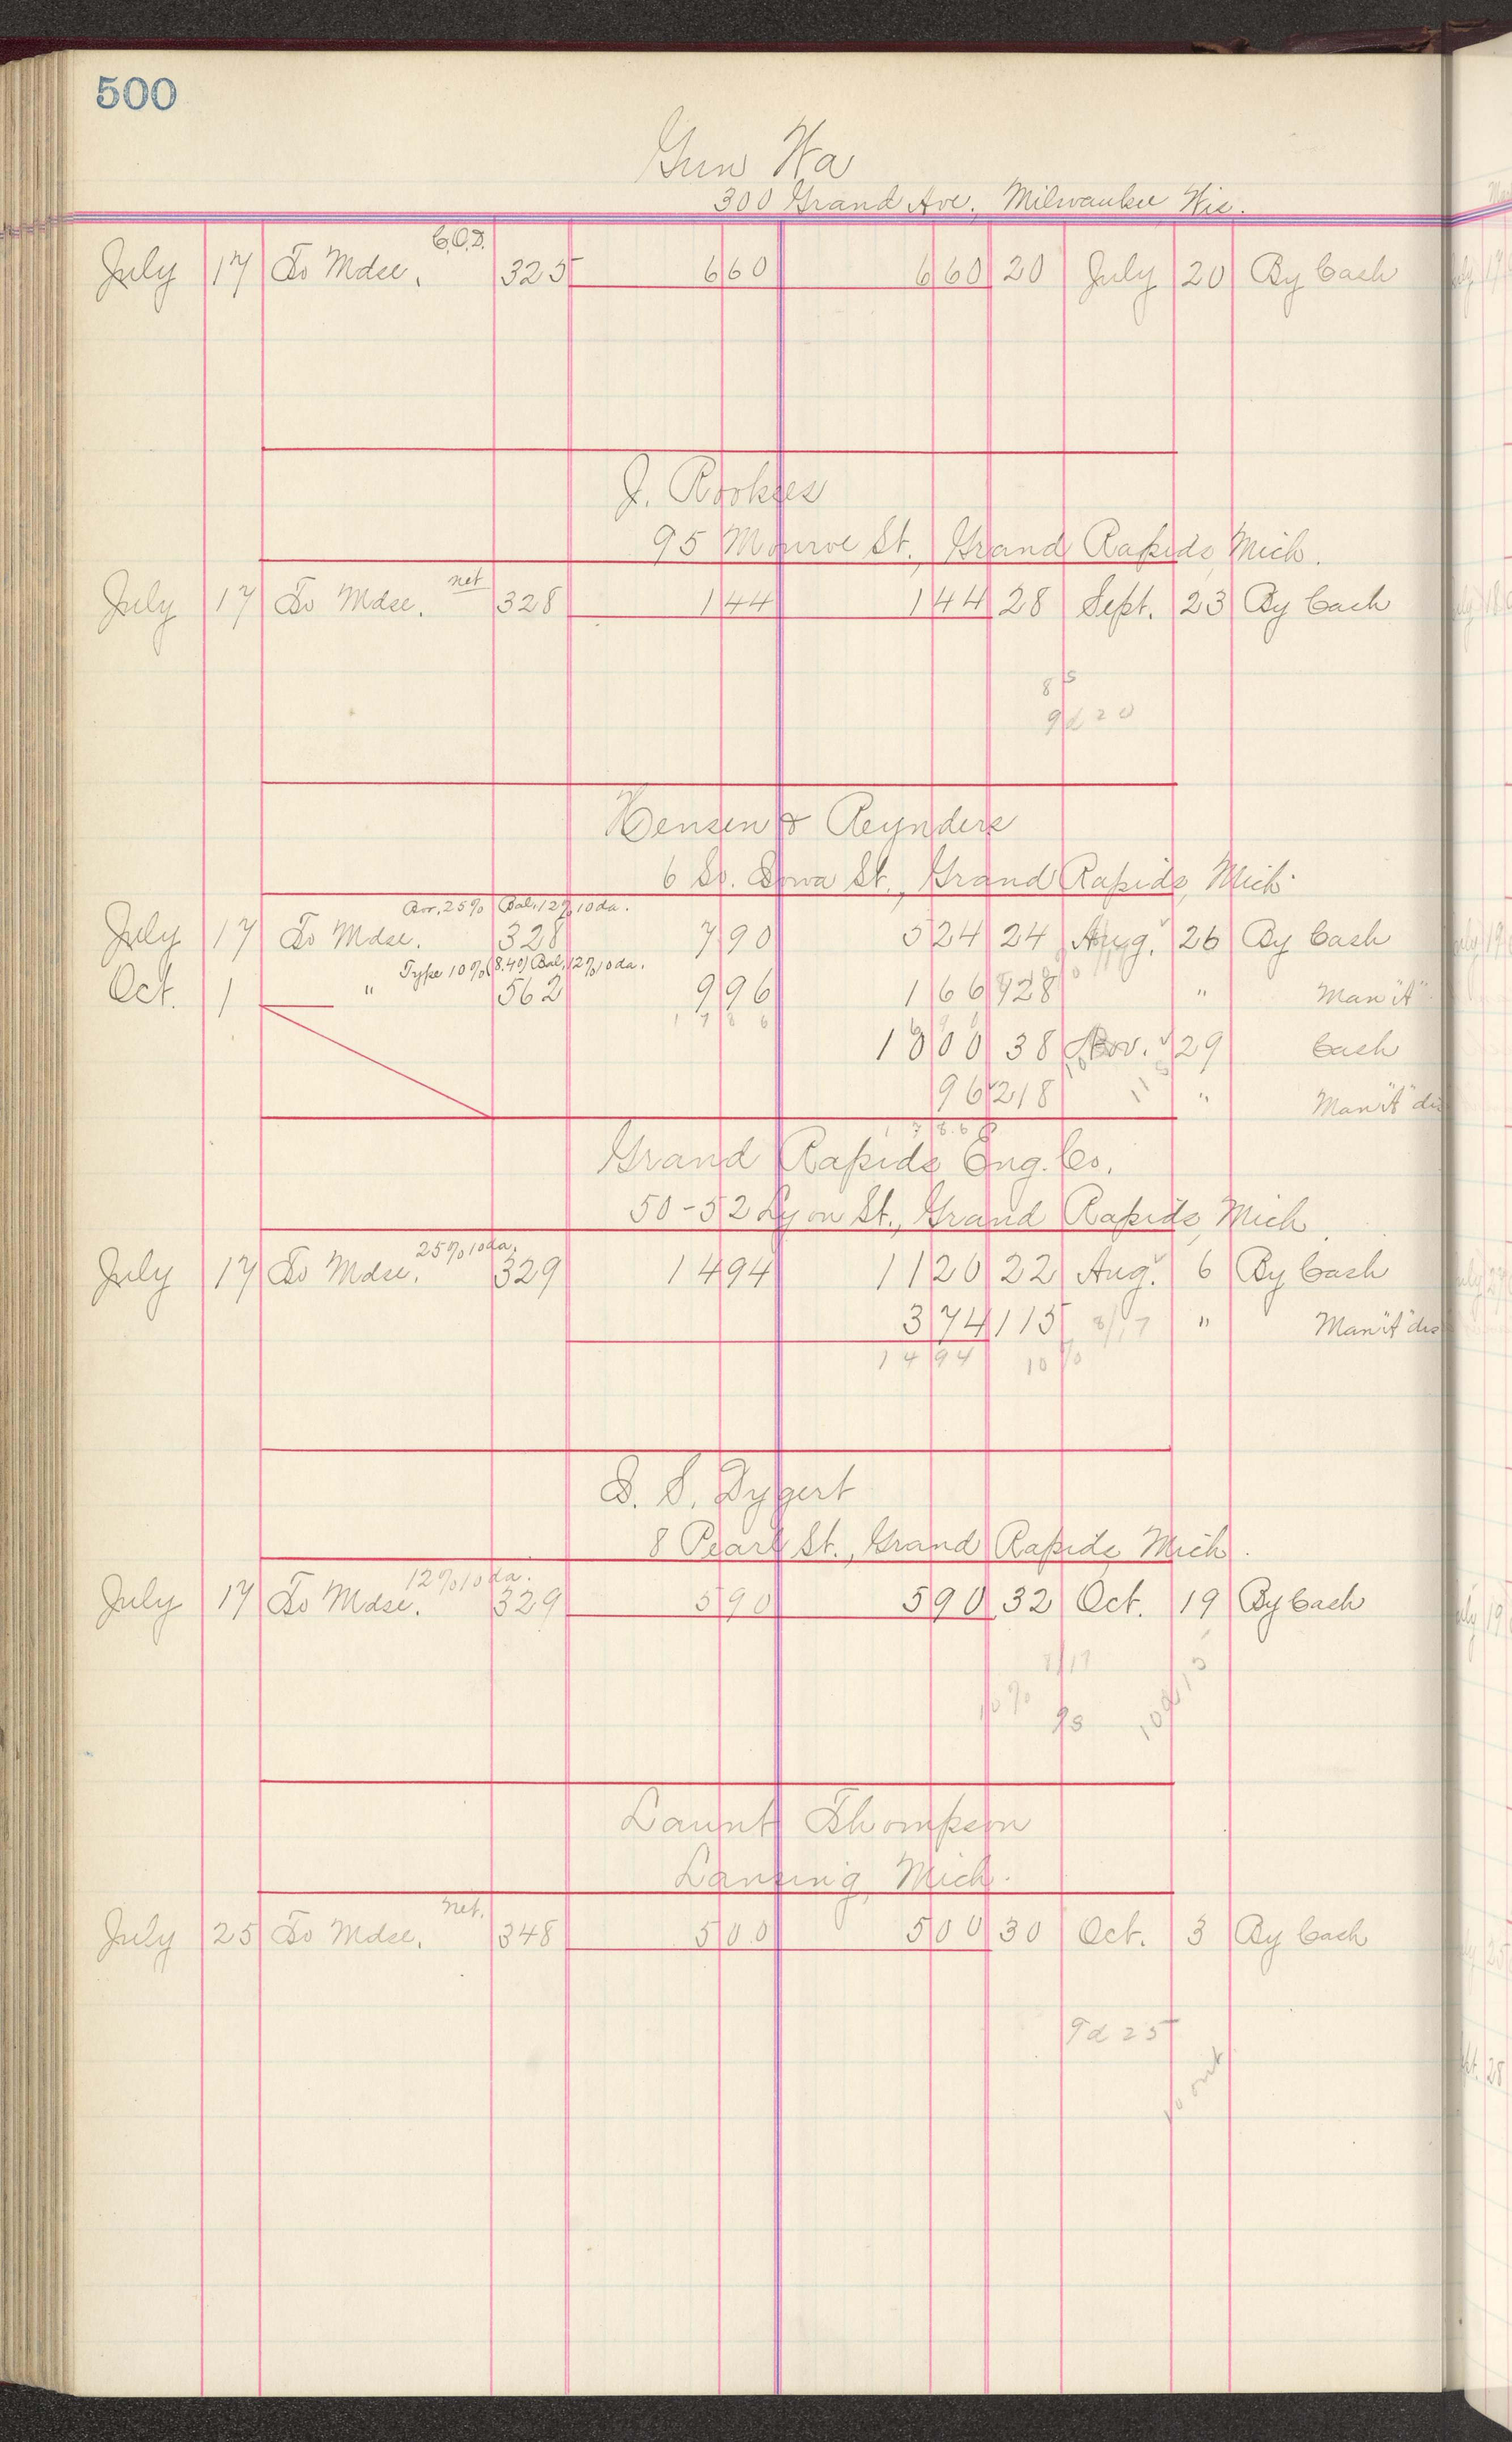 500
Gun Wa
300 Grand Ave. Milwaukee Wis.
C.O.D.
July 17 To Mdse. 325 6 60 6 60 20 July 20 By Cash
J. Rookses
95 Monroe St. Grand Rapids Mich.
net
July 17 To Mdse. 328 1 44 1 44 28 Sept. 23 By Cash
8/5
9d 20
Hensen & Reynders
6 So. Iowa St., Grand Rapids, Mich.
25% Bal. 12% 10 da.
July 17 To Mdse. 328 7 90 5 24 24 Aug. 26 By Cash
Type 10% (8.40) Bal. 12% 10 da.
Oct. 1 " 562 9 96 1 66 " Man "A"
17 86
38 Nov. 29 Cash
96 218 " Man "A" dis
17 86
Grand Rapids Eng. Co.
50-52 Lyon St., Grand Rapids, Mich.
25% 10 da.
July 17 To Mdse. 329 14 94 11 20 22 Aug. 6 By Cash
3 74 115 8/17 " Man "A" dis
14 94 10%
S. S. Dygert
8 Pearl St., Grand Rapids Mich.
12% 10 da.
July 17 To Mdse. 329 5 90 5 90 32 Oct. 19 By Cash
8/17
10% 10d 15
Launt Thompson
Lansing, Mich.
net.
July 25 To Mdse. 348 5 00 5 00 30 Oct. 3 By Cash
9d 25